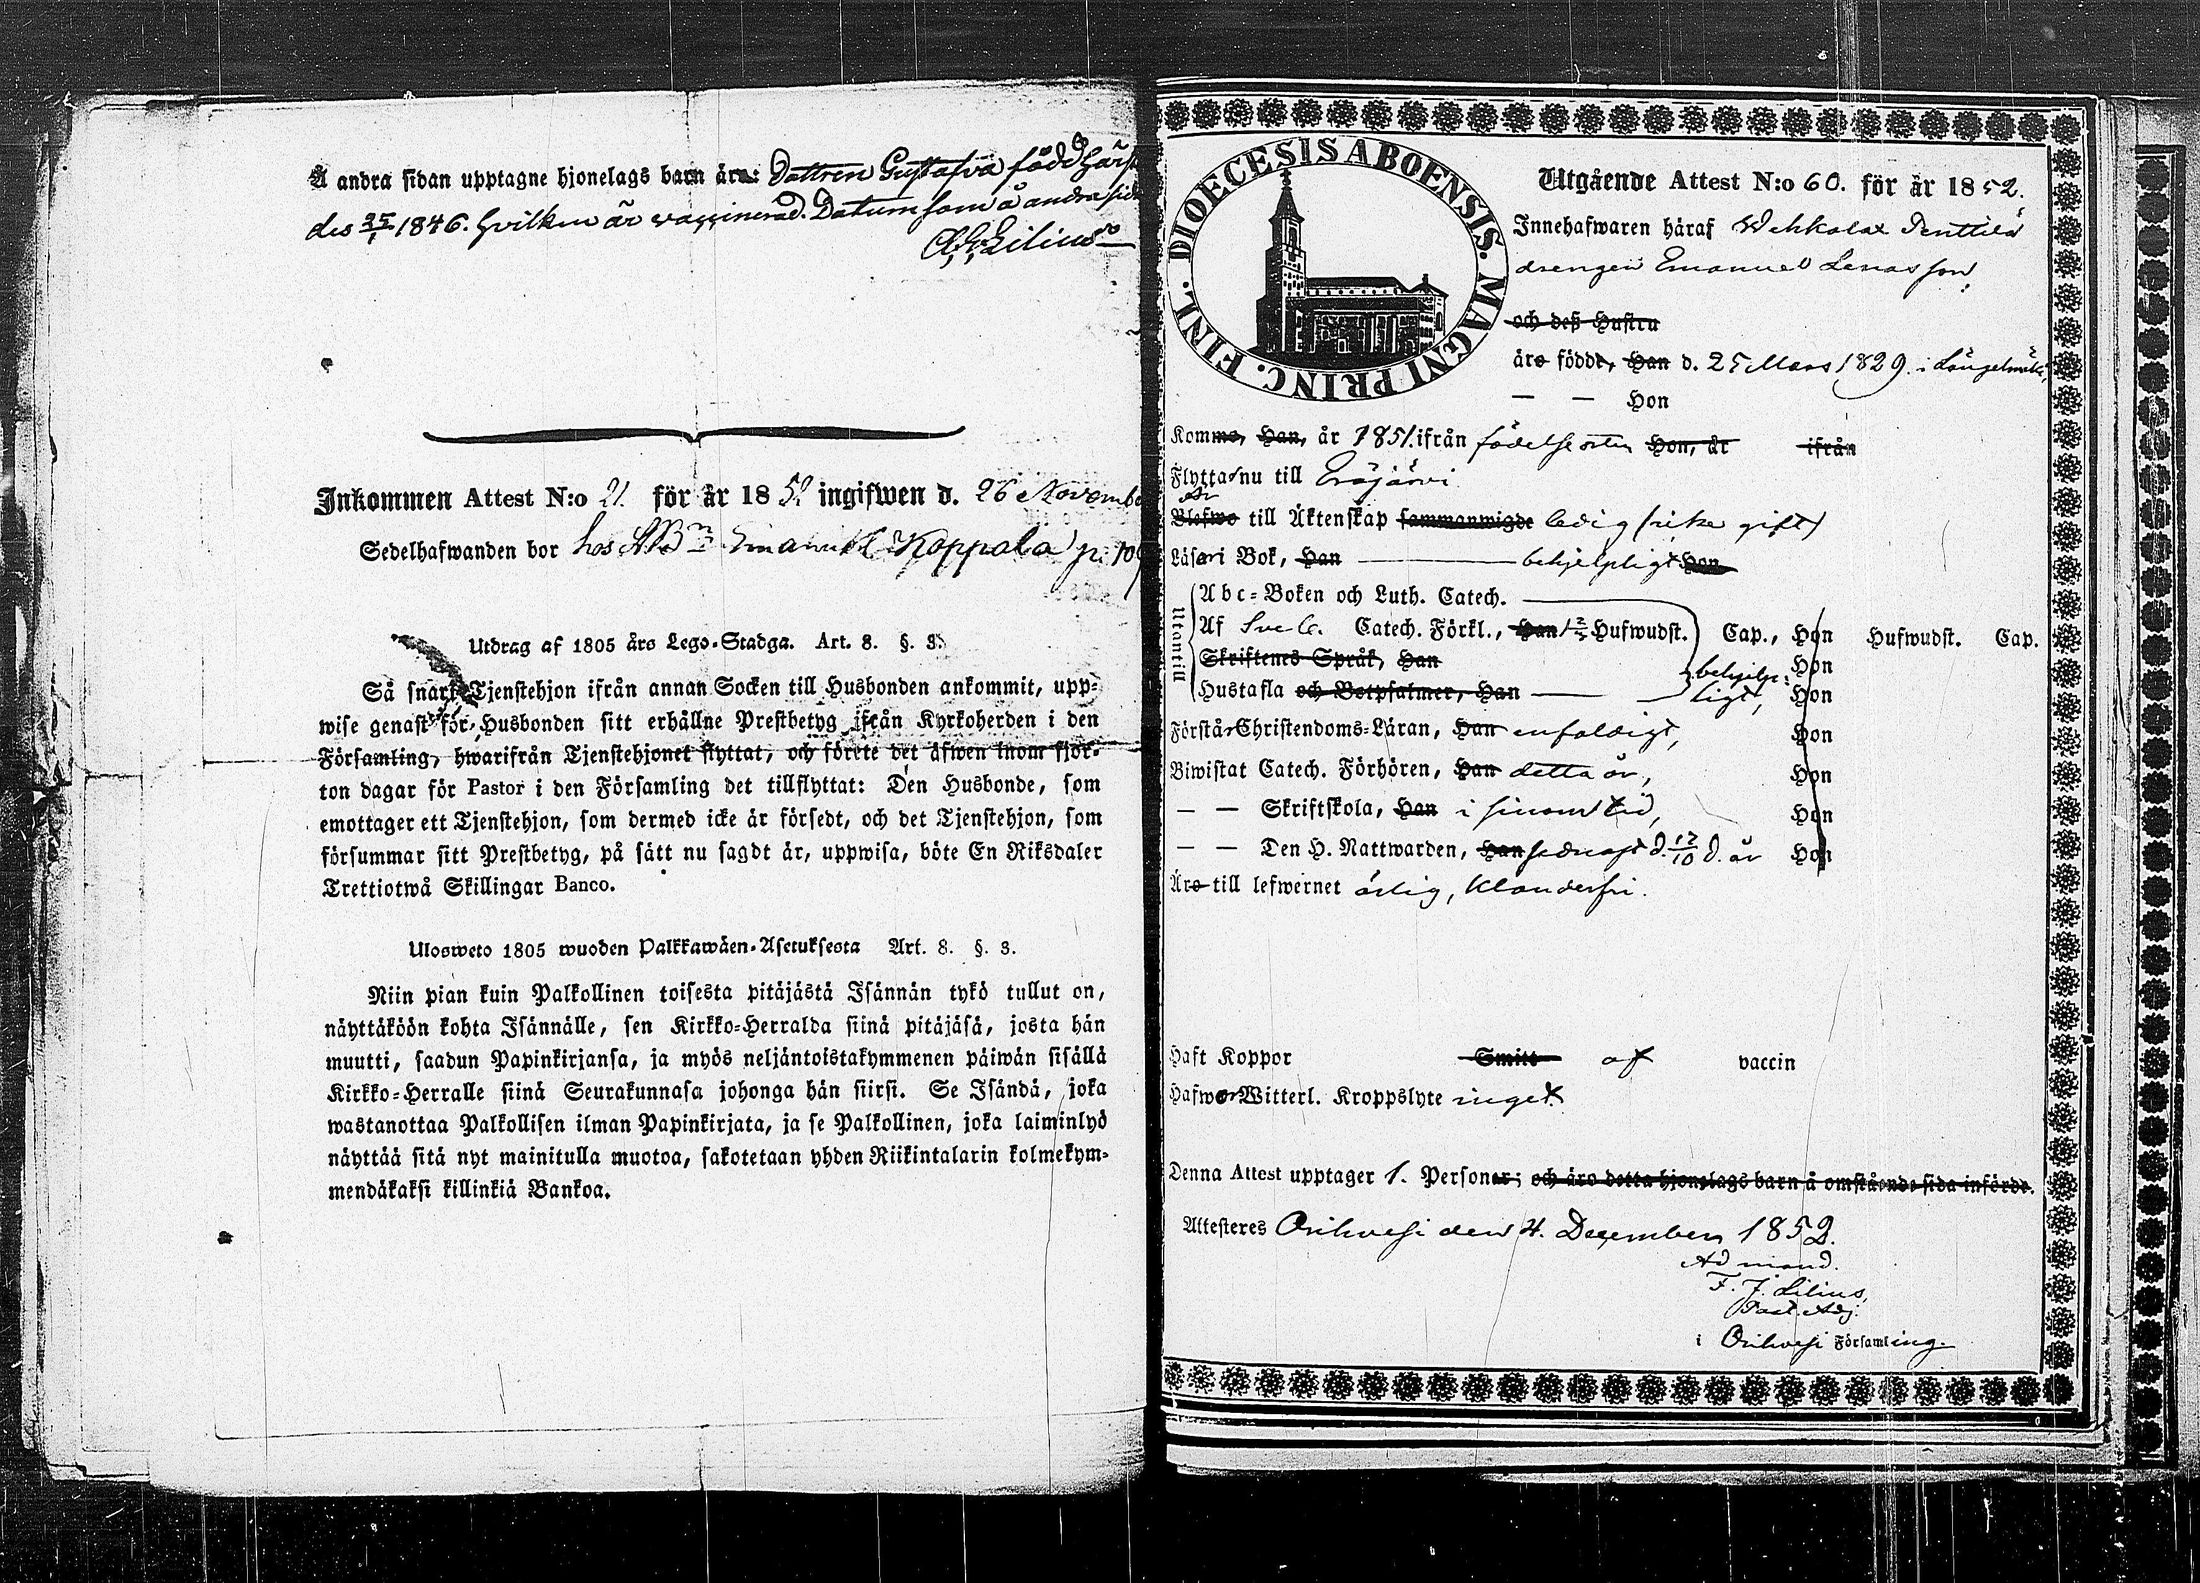 Å andra sidan upptagne hjonelags barn äro: Dottren Gustafva född härst
des 25/1 1846. hvilken är vaccinerad. Datum som å andra sidn
Lilius
Inkommen Attest N:o 21. för år 1852 ingifwen d. 26 Novembe
Sedelhafwanden bor hos Emanuel Koppala p. 109
Utdrag af 1805 års Lego-Stadga. Art. 8. §. 3.
Så snart Tjenstehjon ifrån annan Socken till Husbonden ankommit, upp-
wise genast för Husbonden sitt erhållne Prestbetyg ifrån Kyrkoherden i den
Församling, hwarifrån Tjenstehjonet flyttat, och förete det äfwen inom fjor-
ton dagar för Pastor i den Församling det tillflyttat: Den Husbonde, som
emottager ett Tjenstehjon, som dermed icke är försedt, och det Tjenstehjon, som
försummar sitt Prestbetyg, på sätt nu sagdt är, uppwisa, böte En Riksdaler
Trettiotwå Skillingar Banco.
Ulosweto 1805 wuoden Palkkawäen-Asetuksesta Art. 8. §. 3.
Niin pian kuin Palkollinen toisesta pitäjästä Isännän tykö tullut on,
näyttäköön kohta Isännälle, sen Kirkko-Herralda siinä pitäjäsä, josta hän
muutti, saadun Papinkirjansa, ja myös neljäntoistakymmenen päiwän sisällä
Kirkko-Herralle siinä Seurakunnasa johonga hän siirsi. Se Isändä, joka
wastanottaa Palkollisen ilman Papinkirjata, ja se Palkollinen, joka laiminlyö
näyttää sitä nyt mainitulla muotoa, sakotetaan yhden Riikintalarin kolmekym-
mendäkaksi killinkiä Bankoa.
DIOECESIS ABOENSIS. MAGNI PRINC. FINL.
Utgående Attest N:o 60. för år 1852.
Innehafwaren häraf Wehkalax Penttilä
drengen Emanuel Lenasson,
och deß Hustru
äro födde, Han d. 25 Mars 1829. i Längelmäki,
— — Hon
Komme, Han, år 1851. ifrån födelseorten Hon, år ifrån
Flyttar nu till Eräjärvi
Är
Blefwo till Äktenskap sammanwigde ledig (icke gift)
Läser i Bok, Han behjelpligt Hon
Utantill
Abc-Boken och Luth. Catech.
Af Sveb. Catech. Förkl., Han Hufwudst. Cap., Hon Hufwudst. Cap.
Skriftenes Språk, Han behjelp- Hon
Hustafla och Botpsalmer, Han ligt, Hon
Förstår Christendoms-Läran, Han enfaldigt, Hon
Biwistat Catech. Förhören, Han detta år, Hon
— — Skriftskola, Han i sinom tid, Hon
— — Den H. Nattwarden, Han sednast d. 17/10 d. år Hon
Äro till lefwernet ärlig, klanderfri.
Haft Koppor Smitt af vaccin
Hafwer Witterl. Kroppslyte inget.
Denna Attest upptager 1. Personer; och äro detta hjonelags barn å omstående sida införde.
Attesteres Orihvesi den 4. December 1852.
Ad mand.
F. J. Lilius,
Past. Adj.
i Orihvesi Församling.